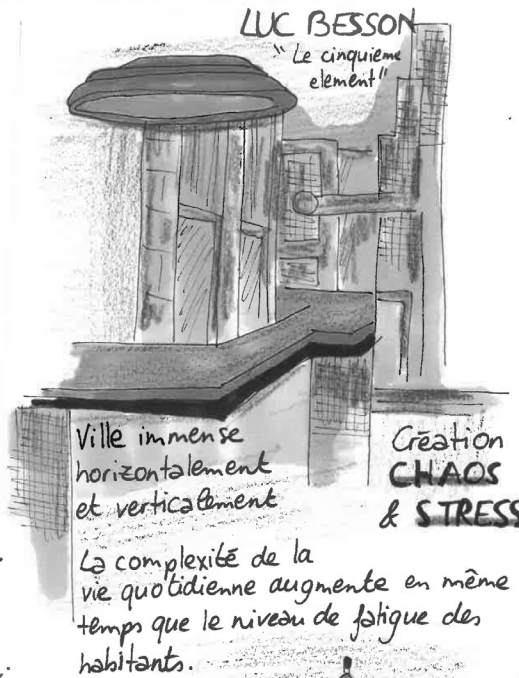 LUC BESSON
"Le cinquième
element"
Ville immense
horizontalement
et verticalement
Création
CHAOS
& STRESS
La complexité de la
vie quotidienne augmente en même
temps que le niveau de fatigue des
habitants.